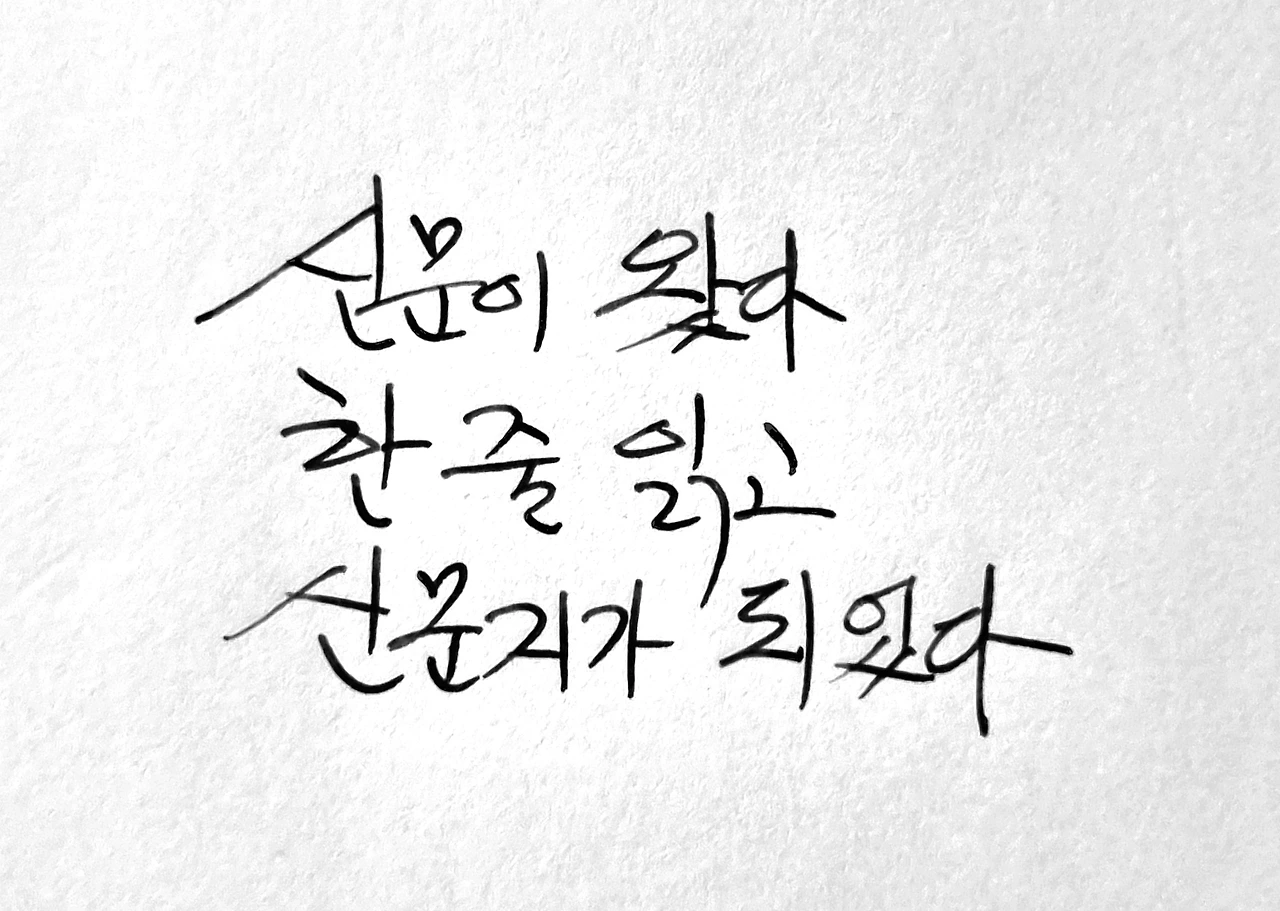 신문이 왔다
한 줄 읽고
신문지가 되었다